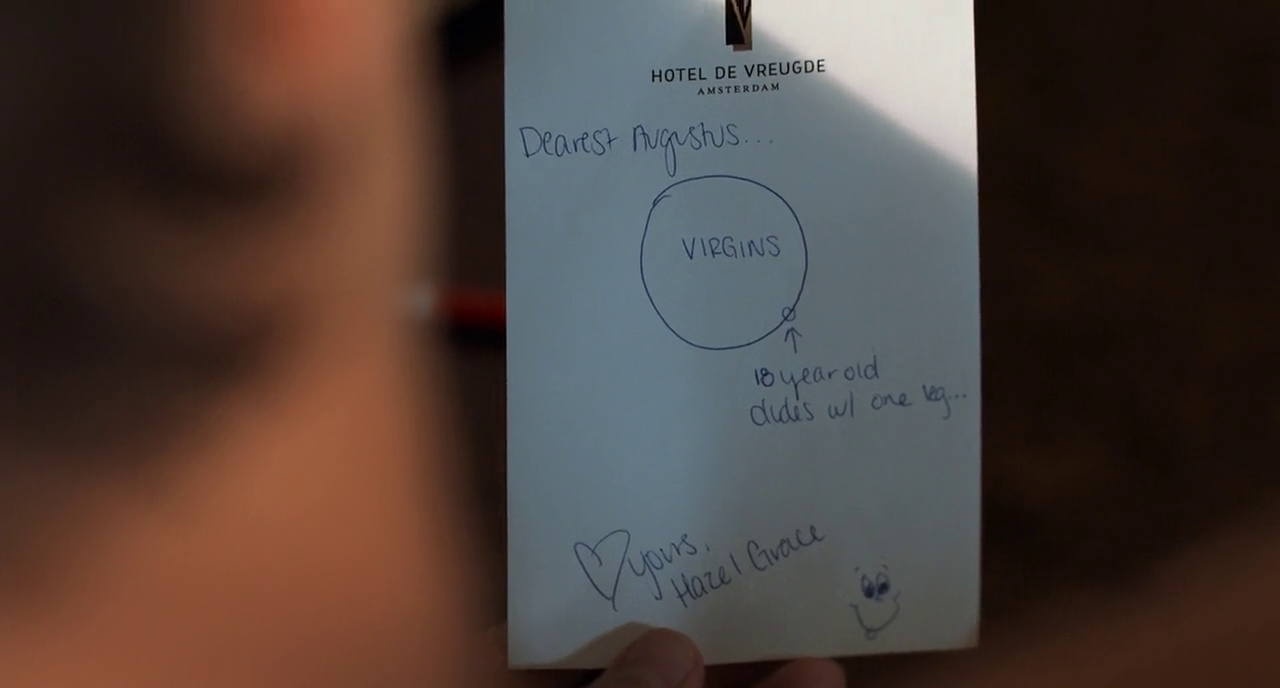 HOTEL DE VREUGDE
AMSTERDAM
Dearest Augustus...
VIRGINS
18 year old
dudes w/ one leg...
yours,
Hazel Grace